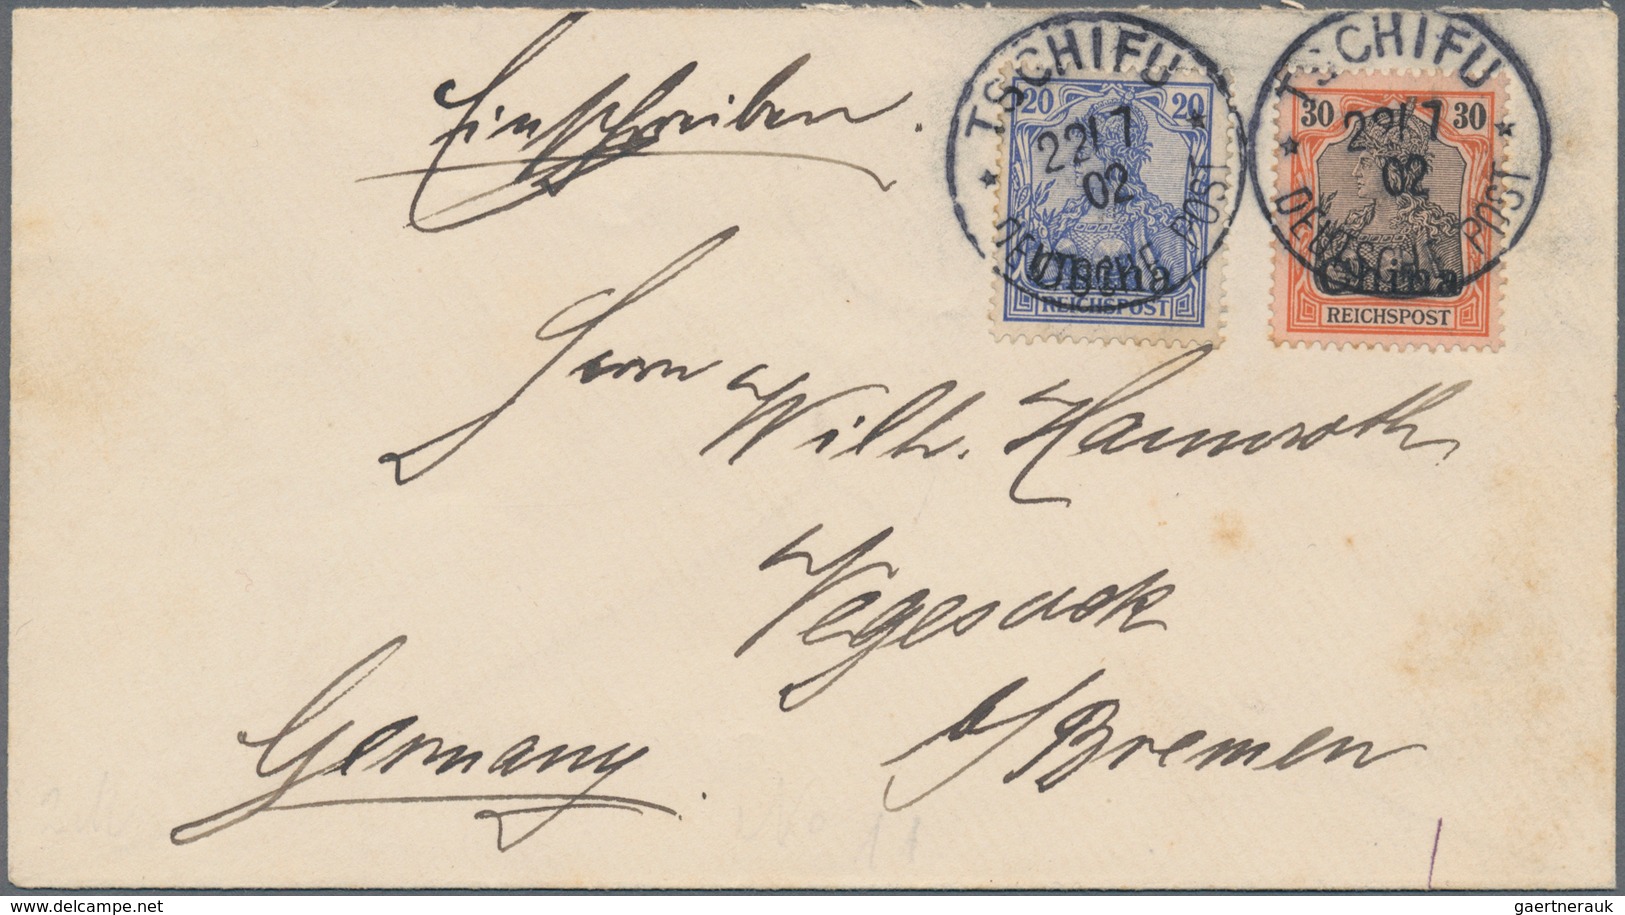 Einschreiben.
TSCHIFU
22/7
02
DEUTSCHE POST
20 20
China
REICHSPOST
TSCHIFU
22/7
02
DEUTSCHE POST
30 30
China
REICHSPOST
Herrn
Wilh. Hamroth
Vegesack
b/Bremen
Germany.
www.delcampe.net
gaertnerauk